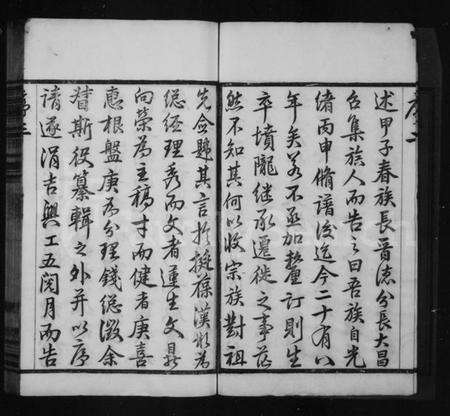 序二
述甲子春族長晋德分長大昌
台集族人而告之曰吾族自光
緒丙申脩譜後迄今二十有八
年矣若不亟加釐訂則生
卒墳隴继承遷徙之事茫
然不知其何以收宗族對祖
先僉題其言於挺葆漢水為
總经理秀而文者蓮生文昇
向榮為主稿才而健者庚喜
惠根盤庚為分理錢總徵余
督斯役纂輯之外并以序
請遂涓吉興工五閱月而告
序三